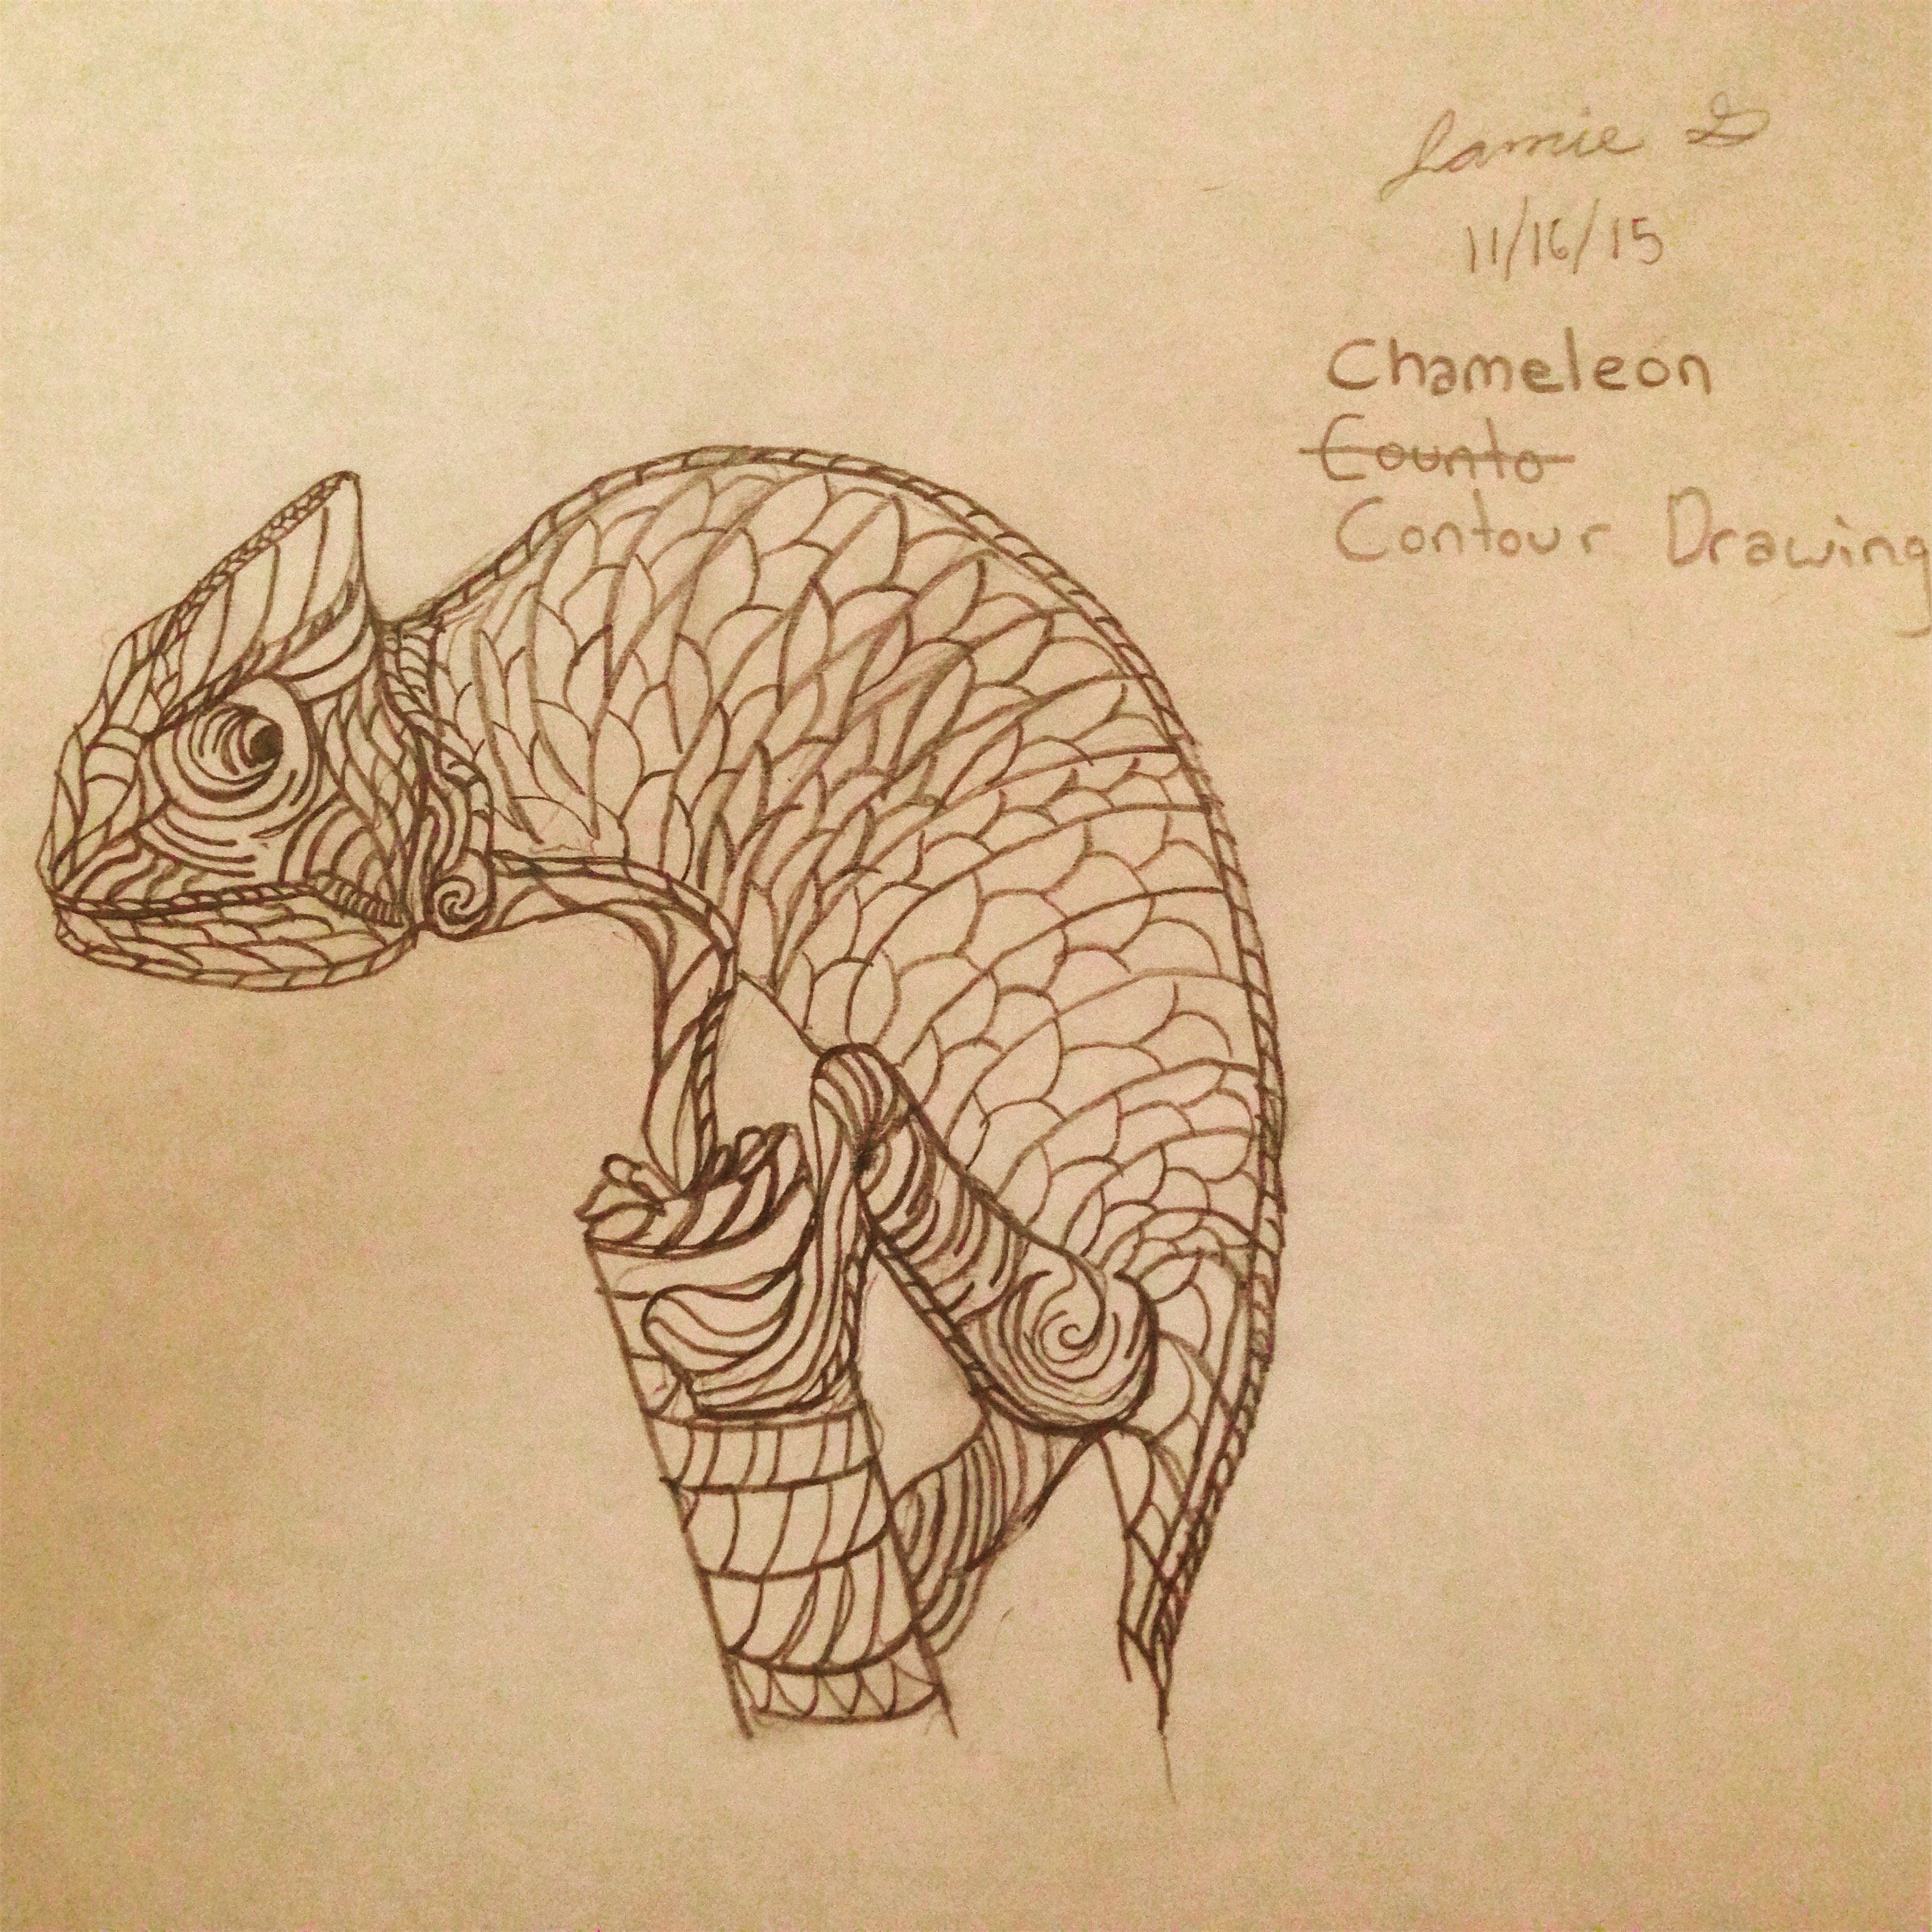 Jamie G
11/16/15
Chameleon
Counto
Contour Drawing